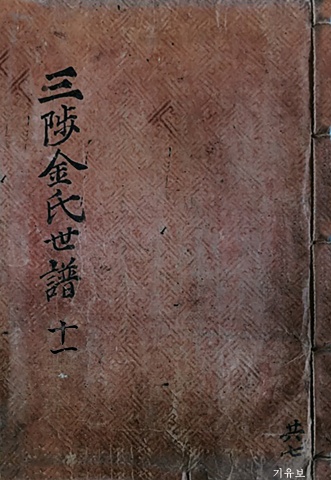 三陟金氏世譜 十一
共七
기유보